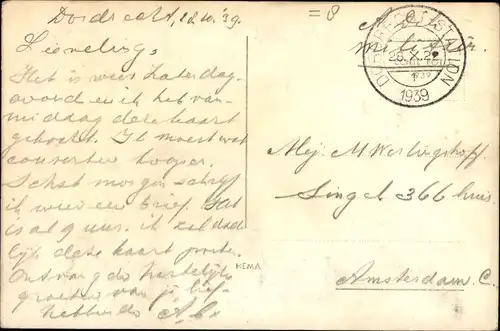 Dordrecht, 12.10.'39.
Lieveling,
Het is weer Zaterdag-
avond en ik heb van-
middag deze kaart
gekocht. Ik moest wat
hooger.
morgen schrijf
ik weer een brief. Het
is al 9 uur. ik zal dade
lijk deze kaart
Ontvang de hartelijke
groeten van je lief-
hebbende
KEMA
= 8
militair.
DORDRECHT STATION
1939
1939
Mej. M. Werlingshoff
Singel 366 huis.
Amsterdam. C.